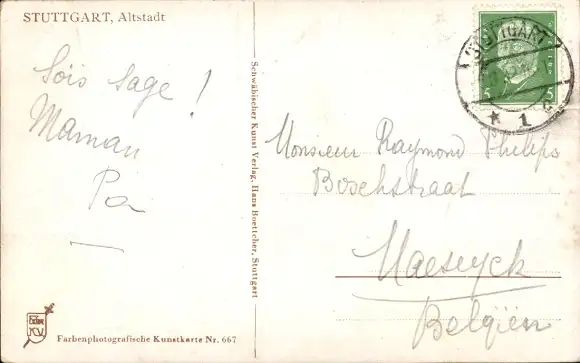 STUTTGART, Altstadt
Sois sage !
Maman
Pa
Schwäbischer Kunst Verlag, Hans Boettcher, Stuttgart
STUTTGART
* 1 c
5 5
Monsieur Raymond Philips
Boschstraat
Maeseyck
Belgïen
Farbenphotografische Kunstkarte Nr. 667